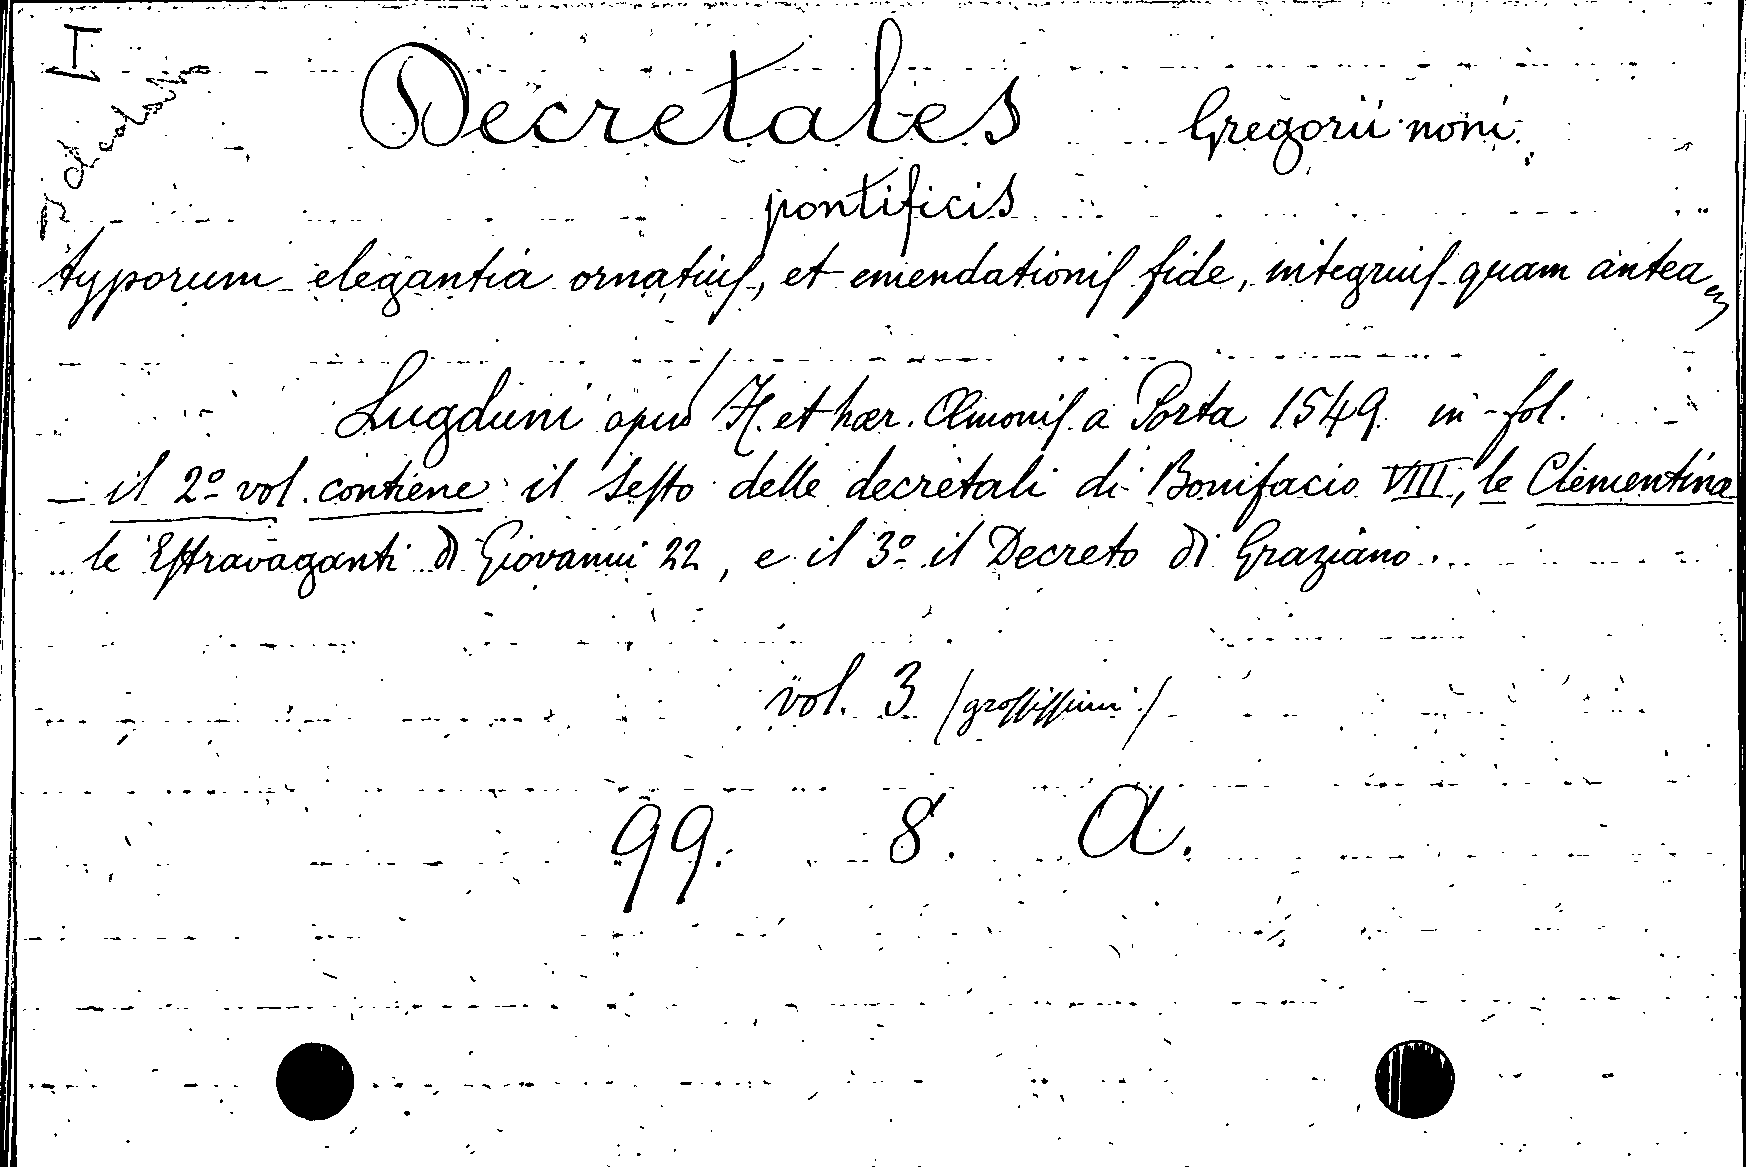 I
Decretales Gregorii noni
pontificis
typorum elegantia ornatius, et emendationis fide, integrius quam antea
Lugduni apud H. et hær. Æmonis a Porta 1549 in-fol.
— il 2º vol. contiene il Sesto delle decretali di Bonifacio VIII, le Clementina
le Estravaganti di Giovanni 22, e il 3º il Decreto di Graziano.
vol. 3 (grossissimi)
99. 8. A.